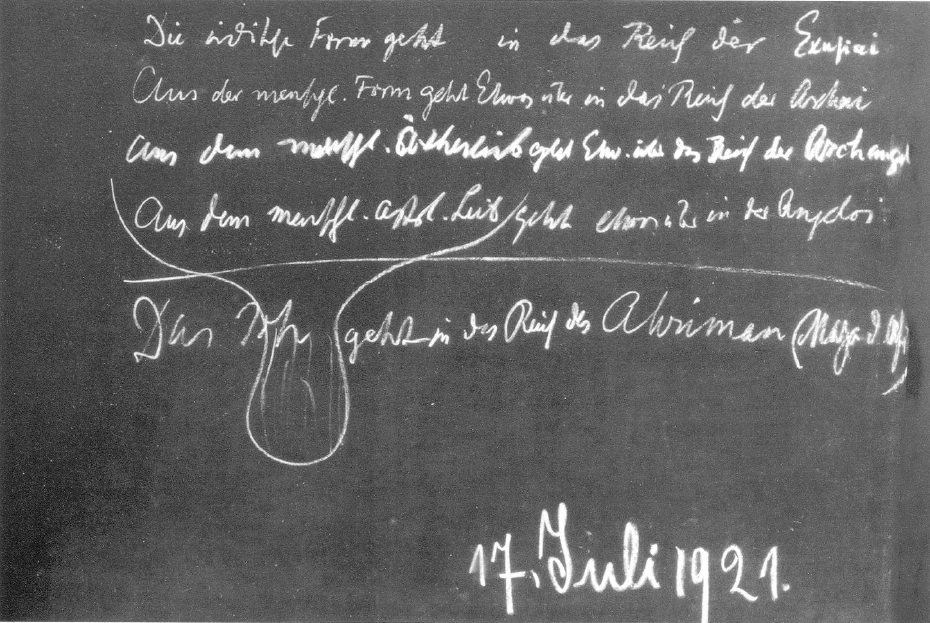 Die irdische Form geht in das Reich der Exusiai
Aus der menschl. Form geht Etwas über in das Reich der Archai
Aus dem menschl. Ätherleib geht Etw. über das Reich der Archangel
Aus dem menschl. astral. Leib geht etwas über in der Angeloi
Das Ich geht in das Reich des Ahriman (Maya d
17. Juli 1921.